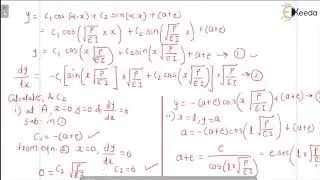 Ekeeda
y = C₁ cos(α·x) + C₂ sin(α·x) + (a+e)
= C₁ cos(√(P/EI) × x) + C₂ sin(√(P/EI) x) + (a+e)
y = C₁ cos(x√(P/EI)) + C₂ sin(x√(P/EI)) + a+e → ①
dy/dx = -C₁[sin[x√(P/EI)] × √(P/EI) + C₂ cos(x√(P/EI))] × √(P/EI) → ②
Calculate C₁ & C₂
i) at A, x=0 y=0 & dy/dx = 0
sub in ①
C₁ = -(a+e) ✓
from eqn ② x=0, dy/dx = 0
0 = C₂ √(P/EI) C₂ = 0 ✓
y = -(a+e) cos(x√(P/EI)) + (a+e)
ii) x = l, y = a
a = -(a+e) cos(l√(P/EI)) + (a+e)
a+e = e / cos(l×√(P/EI)) = e sec(l√(P/EI))